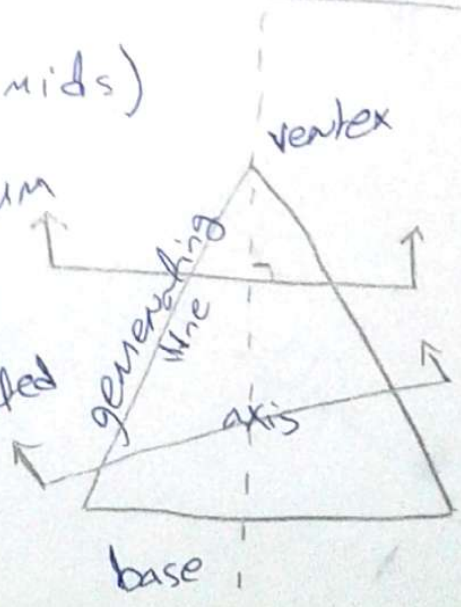 mids)
vertex
um
generating
line
ted
axis
base